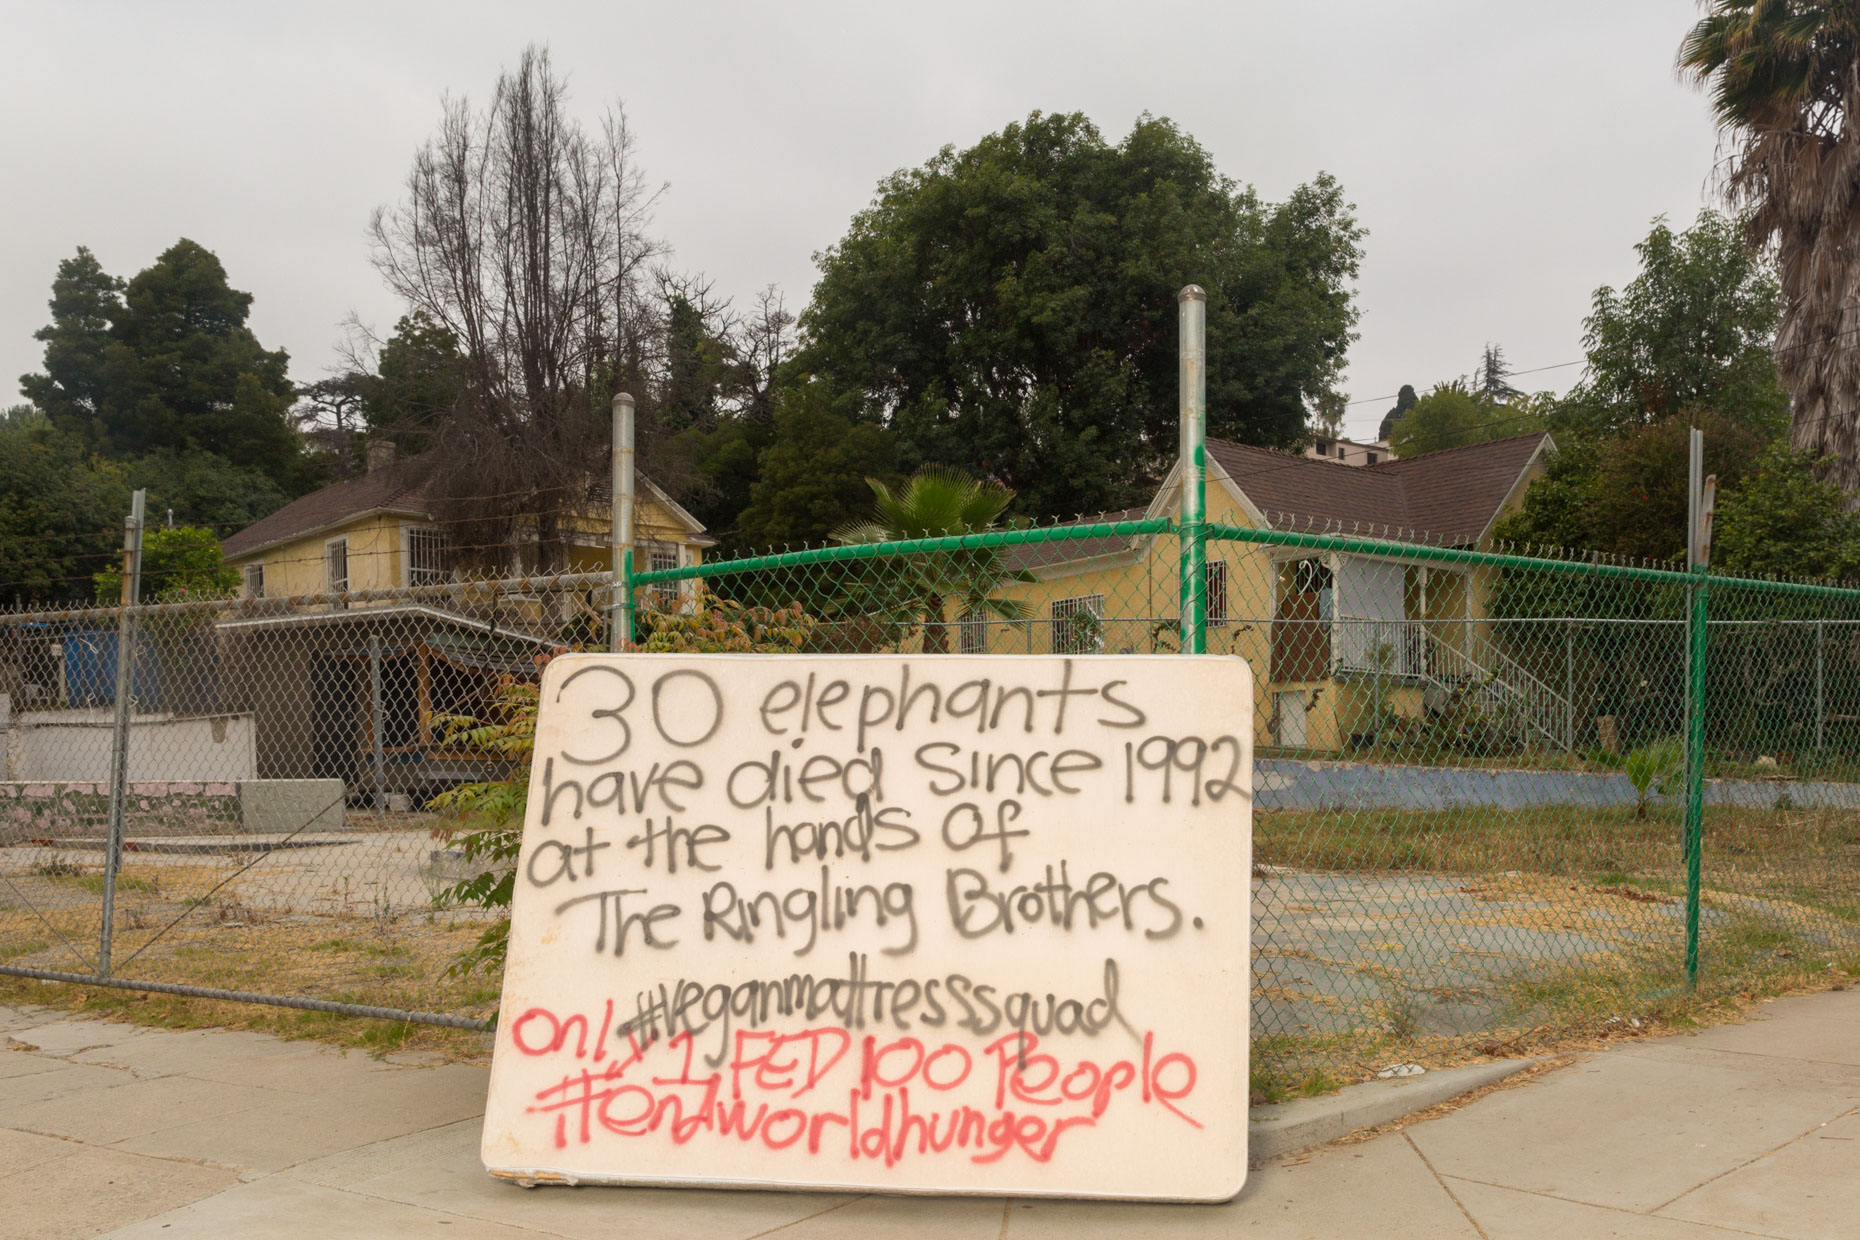 30 elephants
have died since 1992
at the hands of
The Ringling Brothers.
#veganmattresssquad
Only 1 FED 100 People
#endworldhunger